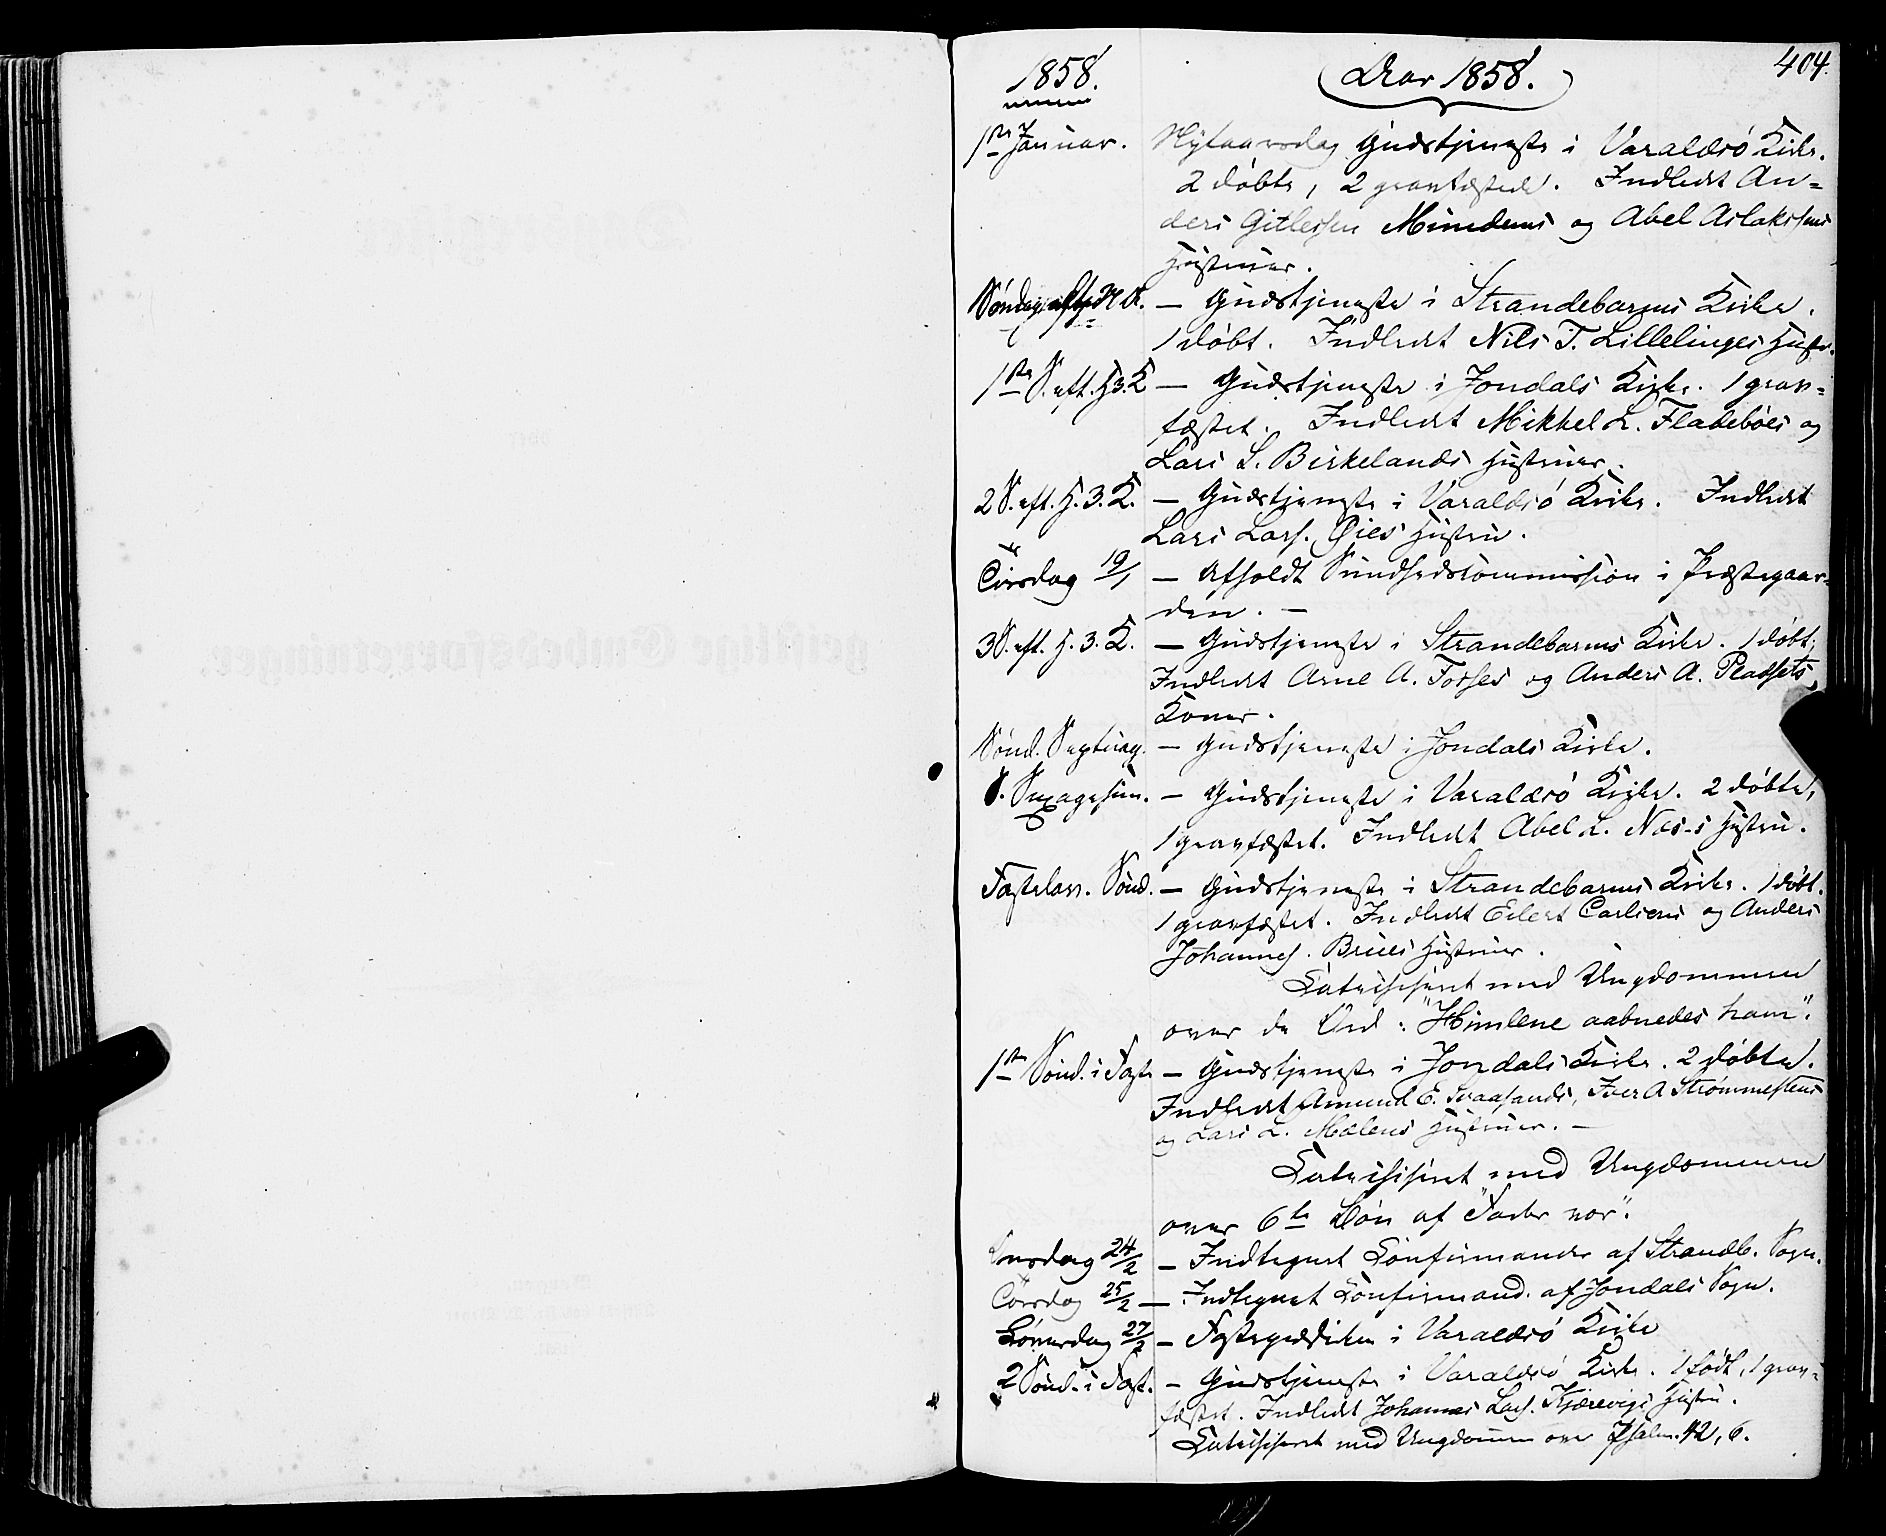 404.
1858. Aar 1858.
1ste Januar. Nytaarsdag Gudstjeneste i Varaldsø Kirke.
2 døbte, 2 gravfæstede. Indledt An-
ders Gitlessen Mundems og Abel Aslaksens
Hustruer.
Søndag efter N. A. — Gudstjeneste i Strandebarms Kirke.
1 døbt. Indledt Nils T. Lillelinges Hustr.
1ste S. eft. H. 3. K. — Gudstjeneste i Jondals Kirke. 1 grav-
fæstet. Indledt Mikkel L. Fladebøes og
Lars S. Birkelands Hustruer.
2 S. eft. H. 3. K. — Gudstjeneste i Varaldsø Kirke. Indledt
Lars Lars. Øies Hustru.
Tirsdag 19/1 — Afholdt Sundhedscommission i Præstegaar-
den. —
3 S. eft. H. 3. K. — Gudstjeneste i Strandebarms Kirke. 1 døbt;
Indledt Arne A. Fosses og Anders A. Pladsets
Koner.
Sønd. Septuag. — Gudstjeneste i Jondals Kirke.
S. Sexagesim. — Gudstjeneste i Varaldsø Kirke. 2 døbte,
1 gravfæstet. Indledt Abel L. Næs-s Hustru.
Fastelavn. Sønd. — Gudstjeneste i Strandebarms Kirke. 1 døbt.
1 gravfæstet. Indledt Eilert Carlsens og Anders
Johannes. Bruces Hustruer.
Catechiseret med Ungdommen
over de Ord: "Himlene aabnedes ham".
1ste Sønd. i Faste — Gudstjeneste i Jondals Kirke. 2 døbte.
Indledt Amund E. Svaasands, Iver A Strømmestens
og Lars L. Mælens Hustruer. —
Catechiseret med Ungdommen
over 6te Bøn af "Fader vor".
Onsdag 24/2 — Indtegnet Confirmander af Strandb. Sogn.
Torsdag 25/2 — Indtegnet Confirmand. af Jondals Sogn.
Løverdag 27/2 — Fasteprædiken i Varaldsø Kirke
2 Sønd. i Fast. — Gudstjeneste i Varaldsø Kirke. 1 født, 1 grav-
fæstet. Indledt Johannes Lars. Kjærevigs Hustru.
Catechiseret med Ungdommen over Psalm. 42, 6.